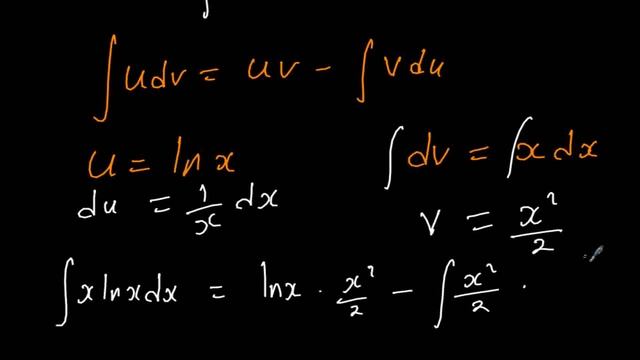 ∫ u dv = uv − ∫ v du
u = ln x
∫ dv = ∫ x dx
du = 1/x dx
v = x²/2
∫ x ln x dx = ln x · x²/2 − ∫ x²/2 ·